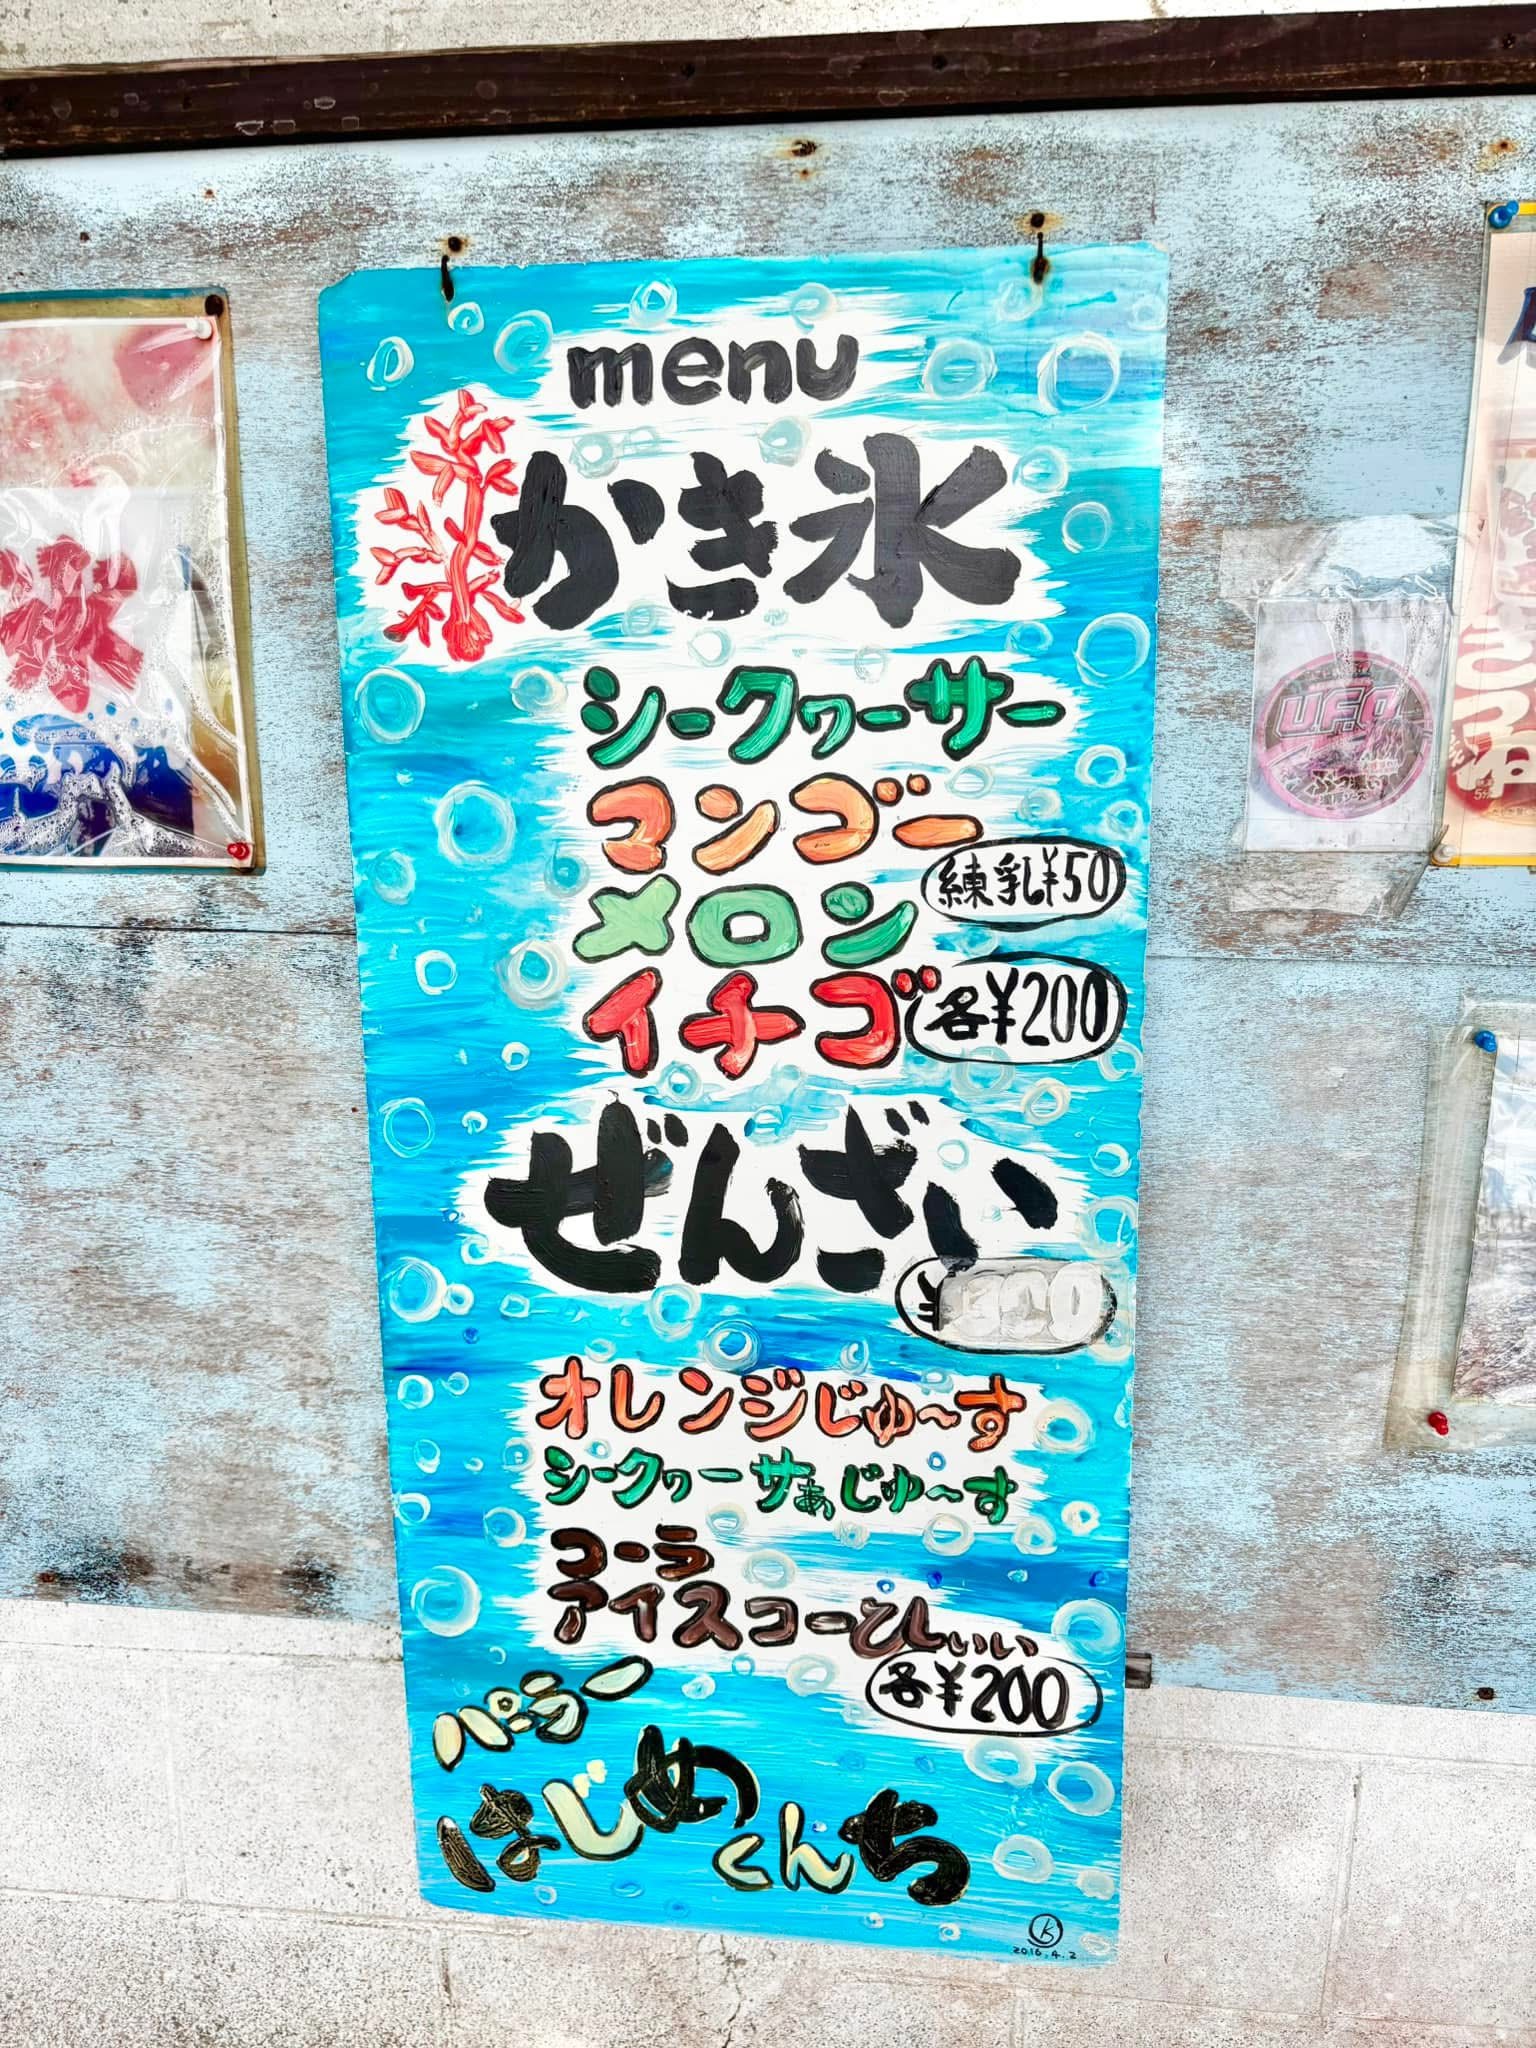 menu
かき氷
シークヮーサー
マンゴー
練乳¥50
メロン
イチゴ
各¥200
ぜんざい
¥
オレンジじゅ〜す
シークヮーサぁじゅ〜す
コーラ
アイスコーひぃい
各¥200
パーラー
はじめくんち
K
2016.4.2
氷
U.F.O.